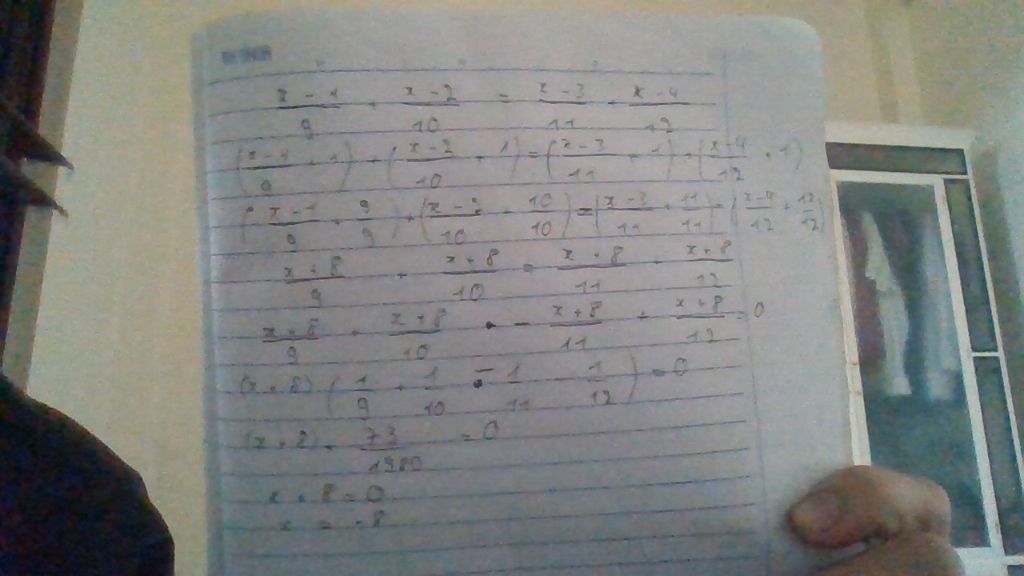 x - 1 / 9 + x - 2 / 10 = x - 3 / 11 + x - 4 / 12
(x - 1 / 9 + 1) + (x - 2 / 10 + 1) = (x - 3 / 11 + 1) + (x - 4 / 12 + 1)
(x - 1 / 9 + 9 / 9) + (x - 2 / 10 + 10 / 10) = (x - 3 / 11 + 11 / 11) + (x - 4 / 12 + 12 / 12)
x + 8 / 9 + x + 8 / 10 = x + 8 / 11 + x + 8 / 12
x + 8 / 9 + x + 8 / 10 - x + 8 / 11 + x + 8 / 12 = 0
(x + 8) (1 / 9 + 1 / 10 - 1 / 11 - 1 / 12) = 0
(x + 8) . 73 / 1980 = 0
x + 8 = 0
x = -8